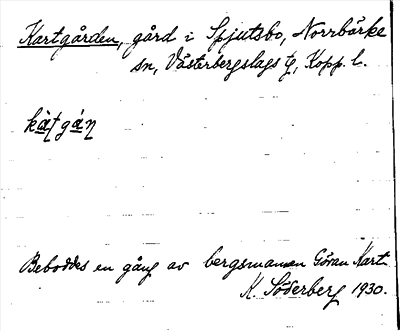 Kartgården, gård i Spjutsbo, Norrbärke
sn, Västerbergslags Kopp. l.
Beboddes en gång av bergsmannen Göran Kart.
K. Söderberg 1930.